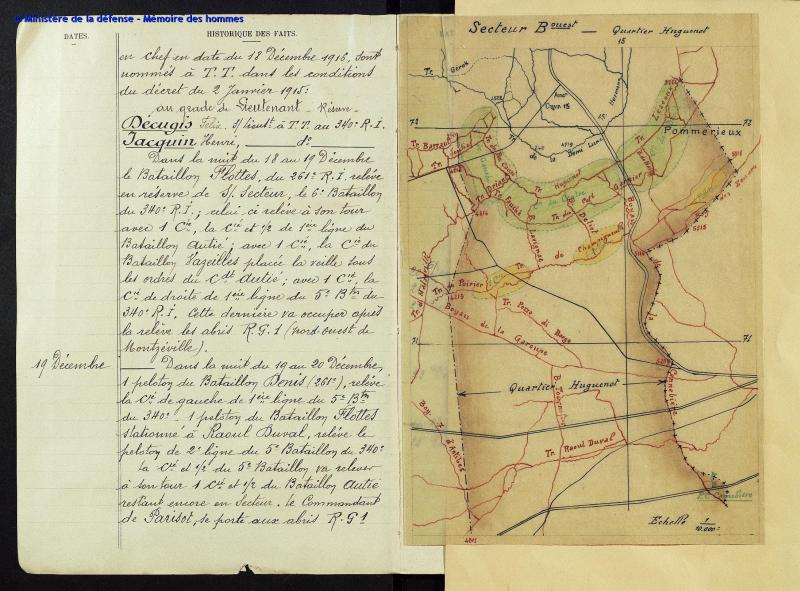 © Ministère de la défense - Mémoire des hommes
DATES.
HISTORIQUE DES FAITS.
en chef en date du 18 Décembre 1916, sont
nommés à T.T. dans les conditions
du décret du 2 Janvier 1915:
au grade de Lieutenant - Réserve -
Décugis Félix, S/lieutt à T.T. au 340e R.I.
Jacquin Henri, do
Dans la nuit du 18 au 19 Décembre
le Bataillon Flottes, du 261e R.I. relève
en réserve de S/. Secteur, le 6e Bataillon
du 340e R.I; celui ci relève à son tour
avec 1 Cie, la Cie et 1/2 de 1ère ligne du
Bataillon Autié; avec 1 Cie, la Cie du
Bataillon Vazeilles placée la veille sous
les ordres du Cdt Autié; avec 1 Cie, la
Cie de droite de 1ère ligne du 5e Bton du
340e R.I. Cette dernière va occuper après
la relève les abris R.G.1 (nord-ouest de
Montzéville).
19 Décembre
Dans la nuit du 19 au 20 Décembre,
1 peloton du Bataillon Denis (261e), relève
la Cie de gauche de 1ère ligne du 5e Bton
du 340e - 1 peloton du Bataillon Flottes
stationné à Raoul Duval, relève le
peloton de 2e ligne du 5e Bataillon du 340e
La Cie et 1/2 du 5e Bataillon va relever
à son tour 1 Cie et 1/2 du Bataillon Autié
restant encore en Secteur. Le Commandant
de Parisot, se porte aux abris R.G.1
Secteur Bouest - Quartier Huguenot
15
Tr. Görck
Tr.
4719
72
72
Pommerieux
Tr. Barraud
Tr. Driant
Tr. Huguenot
Garnier
4814
Tr. du Cdt Delort
B. Lavignec
Tr. de Champigneulle
Boyau
5315
Tr. du Poirier
4213
Tr. Passe di Borgo
Boyau de la Garenne
la
71
71
Quartier Huguenot
Cannebière
Boy. d'Antibes
Tr. Raoul Duval
P.C. Cannebière
4811
Echelle 1/10.000e